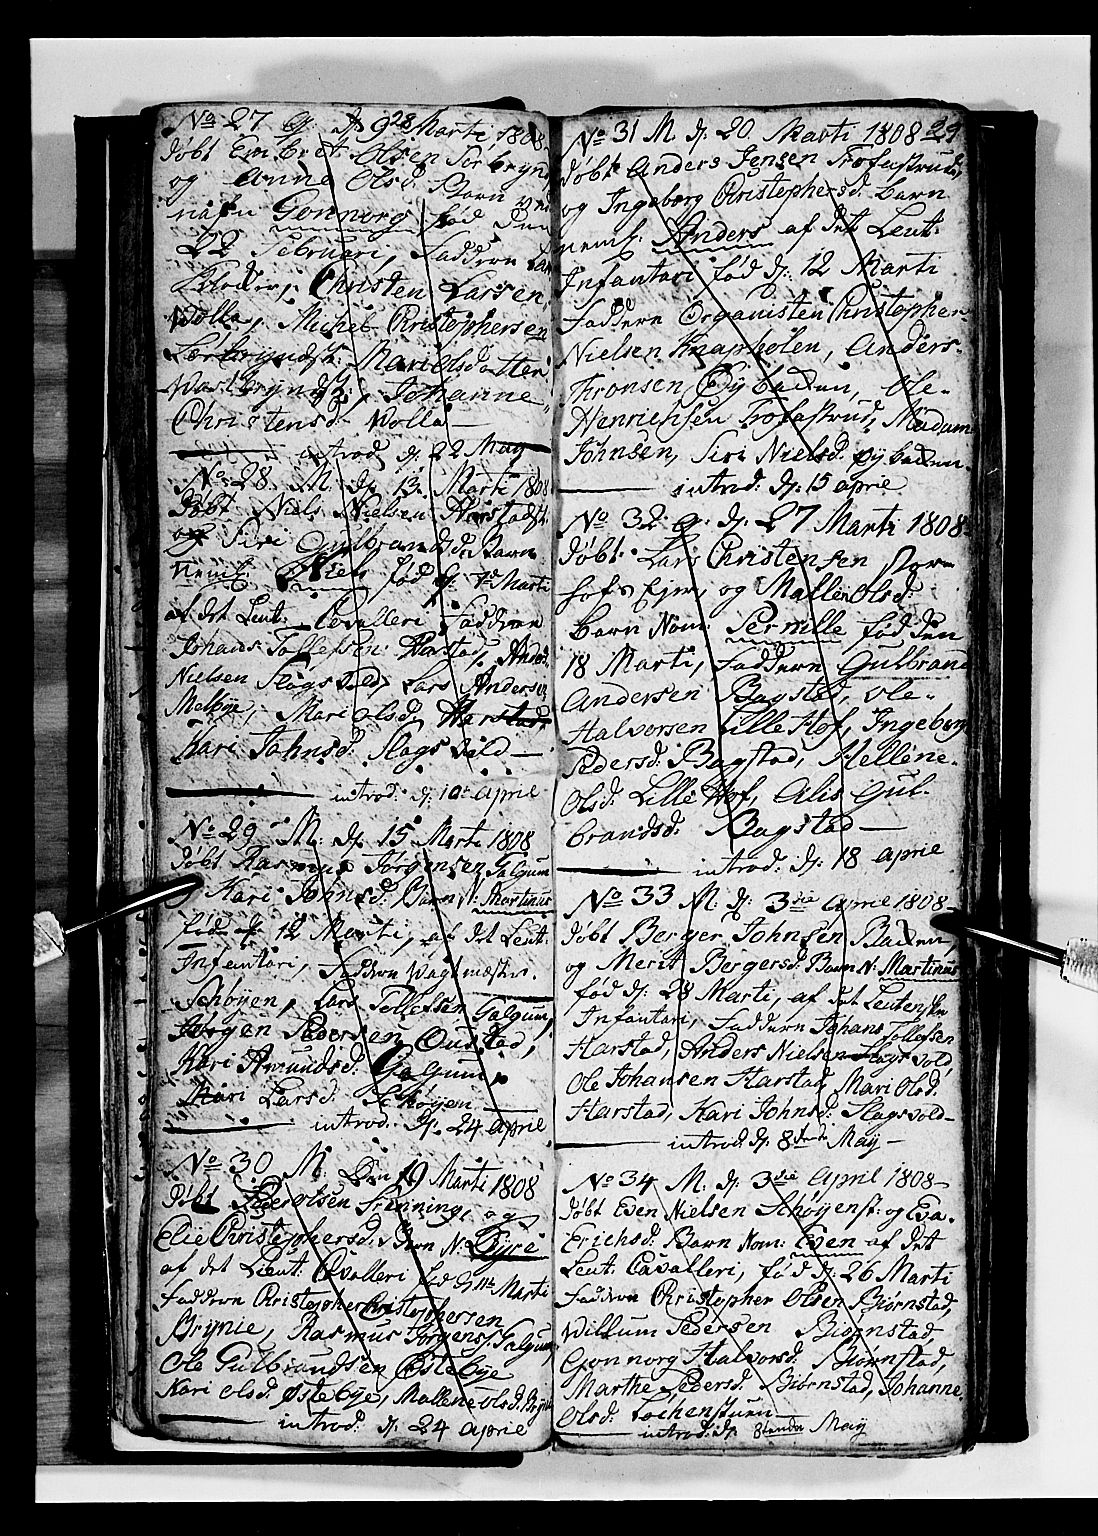 No 27 9 28 Marti 1808
døbt Embret Olsen
og Anne Olsd Barn
nafn Gonnorg fød den
22 Februari, Faddern
Christen Larsen
Wolla, Michel Christophersen
Mari Olsdatter
Johanne
Christensd Wolla
introd d. 22 May
No 28 M. d. 13 Marti 1808
Døbt Niels Nielsen Harstad
og Siri Gulbrandsd. Barn
neml. Niels fød d. Marti
af det Leut: Cavalleri Faddern
Johans Tollefsen Harstad, Anders
Nielsen Slagsvold, Lars Andersen
Melbye, Mari Olsd. Harstad,
Kari Johnsd. Slagsvold
introd. d. 10. April
No 29 M. d. 15 Marti 1808
døbt Rasmus Jørgensen Galgum
Kari Johnsd. Barn N. Martinus
fød d. 12 Marti, af det Leut:
Infantari, Faddern Wagtmæster
Schøyen, Lars Tollefsen Galgum,
Jørgen Pedersen Oustad,
Kari Amundsd. Galgum,
Mari Larsd. Schøyen
introd. d. 24 April
No 30 M. Den 19 Marti 1808
Døbt Peder Olsen Frenning, og
Elie Christophersd. Barn N. Dyre
af det Lieut: Cavalleri fød d. 11te Marti
Faddern Christopher Christophersen
Brynie, Rasmus Jørgens. Galgum,
Ole Gulbrandsen Østebye
Kari Olsd. Østebye, Mallene Olsd.
introd. d. 24 April
29
No 31 M. d. 20 Marti 1808
døbt Anders Jensen Trofastrud,
og Ingeborg Christophersd. Barn
neml. Anders af det Leut.
Infantari fød d. 12 Marti
Faddern Organisten Christopher
Nielsen Knapholen, Anders
Thronsen Eybacken, Ole
Henrichsen Trofastrud, Madam
Johnsen, Siri Nielsd. Eybacken
introd: d. 15 April
No 32 9. d. 27 Marti 1808
døbt Lars Christensen Stor
hofs Ejer, og Mallen Olsd.
Barn Nom: Pernille fød den
18 Marti, Faddern Gulbrand
Andersen Bagstad, Ole
Halvorsen Lille Hof, Ingeborg
Pedersd. Bagstad, Hellene
Olsd. Lille Hof, Alis Gul
brandsd. Bagstad
introd. d. 18 April
No 33 M. d. 3die April 1808
døbt Berger Johnsen Backen
og Merit Bergersd. Barn N. Martinus
fød d. 28 Marti, af det Leutenske
Infantari, Faddern Johans Tollefsen
Harstad, Anders Nielsen Slagsvold,
Ole Johansen Harstad, Mari Olsd.
Harstad, Kari Johnsd. Slagsvold
introd. d. 8de May
No 34 M. d. 3die April 1808
døbt Even Nielsen Schøyenst: og Eva
Erichsd. Barn Nom: Even af det
Leut. Cavalleri, fød d. 26 Marti
Faddern Christopher Olsen Biørnstad,
Willum Pedersen Biørnstad,
Gonnorg Halvorsd. Biørnstad,
Marthe Pedersd. Biørnstad, Johanne
Olsd. Lochenstuen
introd: d. 8 May